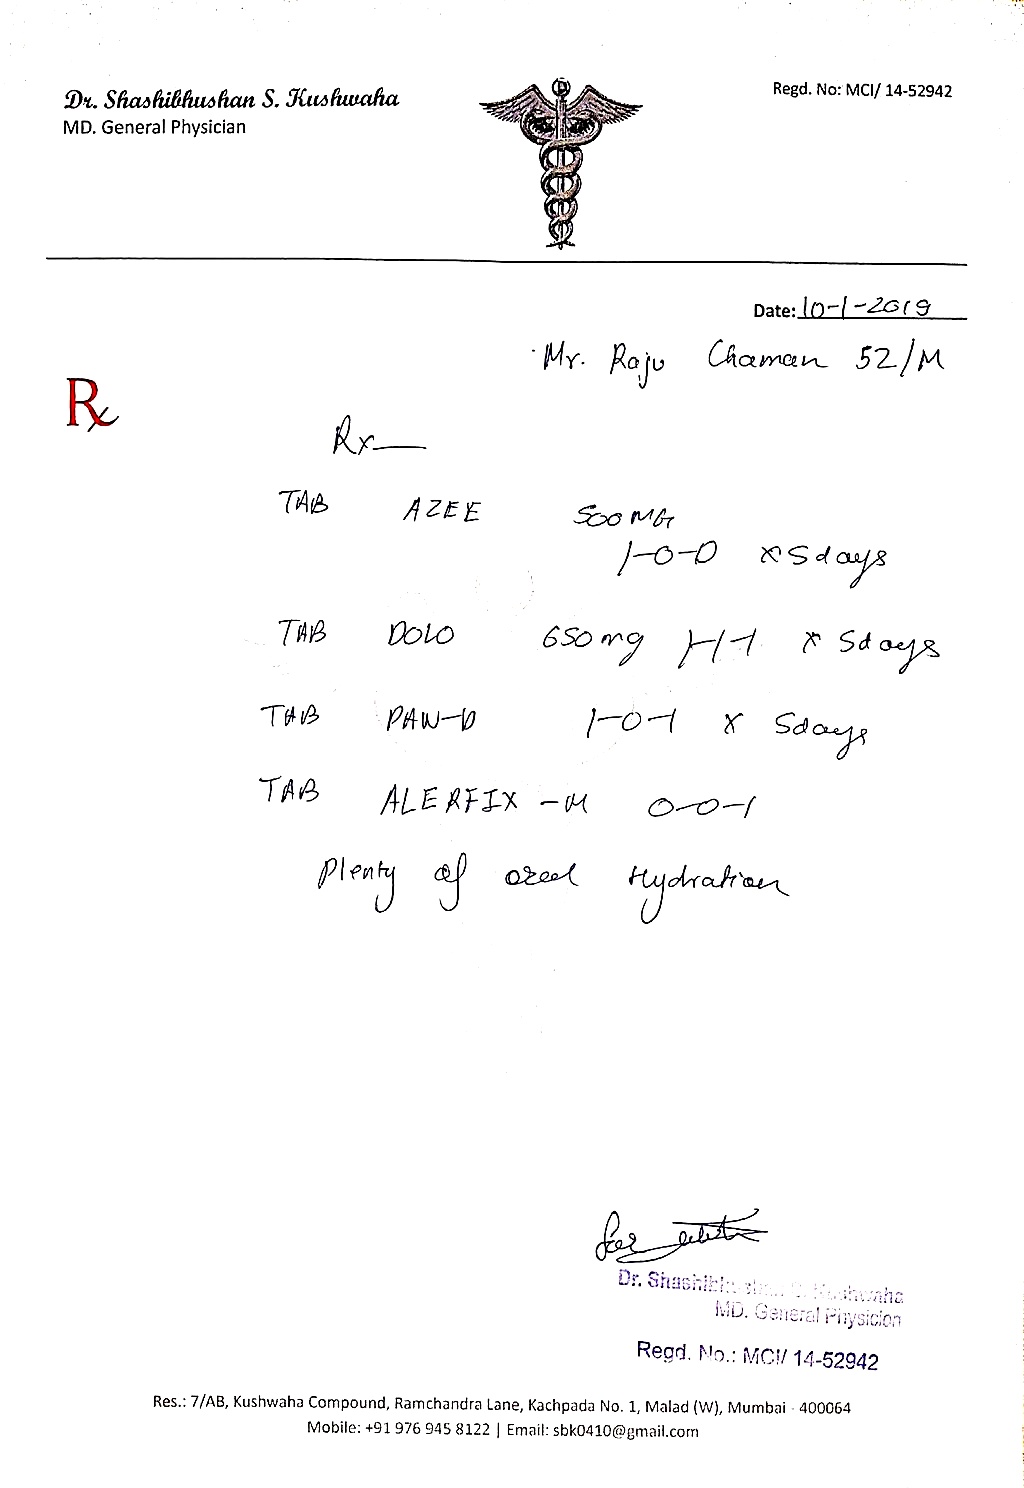 Dr. Shashibhushan S. Kushwaha
MD. General Physician
Regd. No: MCI/ 14-52942
Date: 10-1-2019
Mr. Raju Chaman 52/M
Rx
Rx
TAB AZEE 500 MG
1-0-0 x 5 days
TAB DOLO 650 mg 1-1-1 x 5 days
TAB PAN-D 1-0-1 x 5 days
TAB ALERFIX-M 0-0-1
Plenty of oral Hydration
Dr. Shashibhushan S. Kushwaha
MD. General Physician
Regd. No.: MCI/ 14-52942
Res.: 7/AB, Kushwaha Compound, Ramchandra Lane, Kachpada No. 1, Malad (W), Mumbai - 400064
Mobile: +91 976 945 8122 | Email: sbk0410@gmail.com